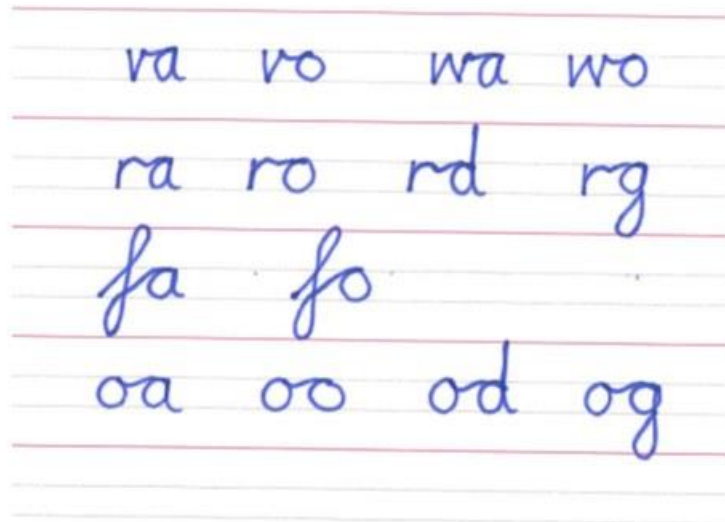 va vo wa wo
ra ro rd rg
fa fo
oa oo od og